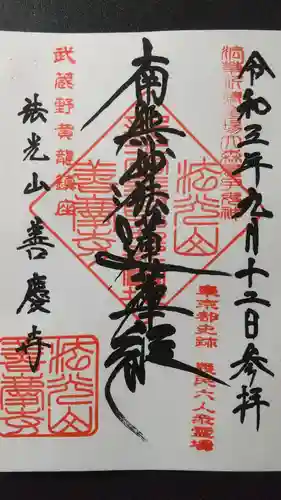 令和三年九月十二日参拝
東京都史跡 農民六人衆霊場
南無妙法蓮華経
武蔵野黄龍鎮座
法光山 善慶寺
法光山
善慶寺